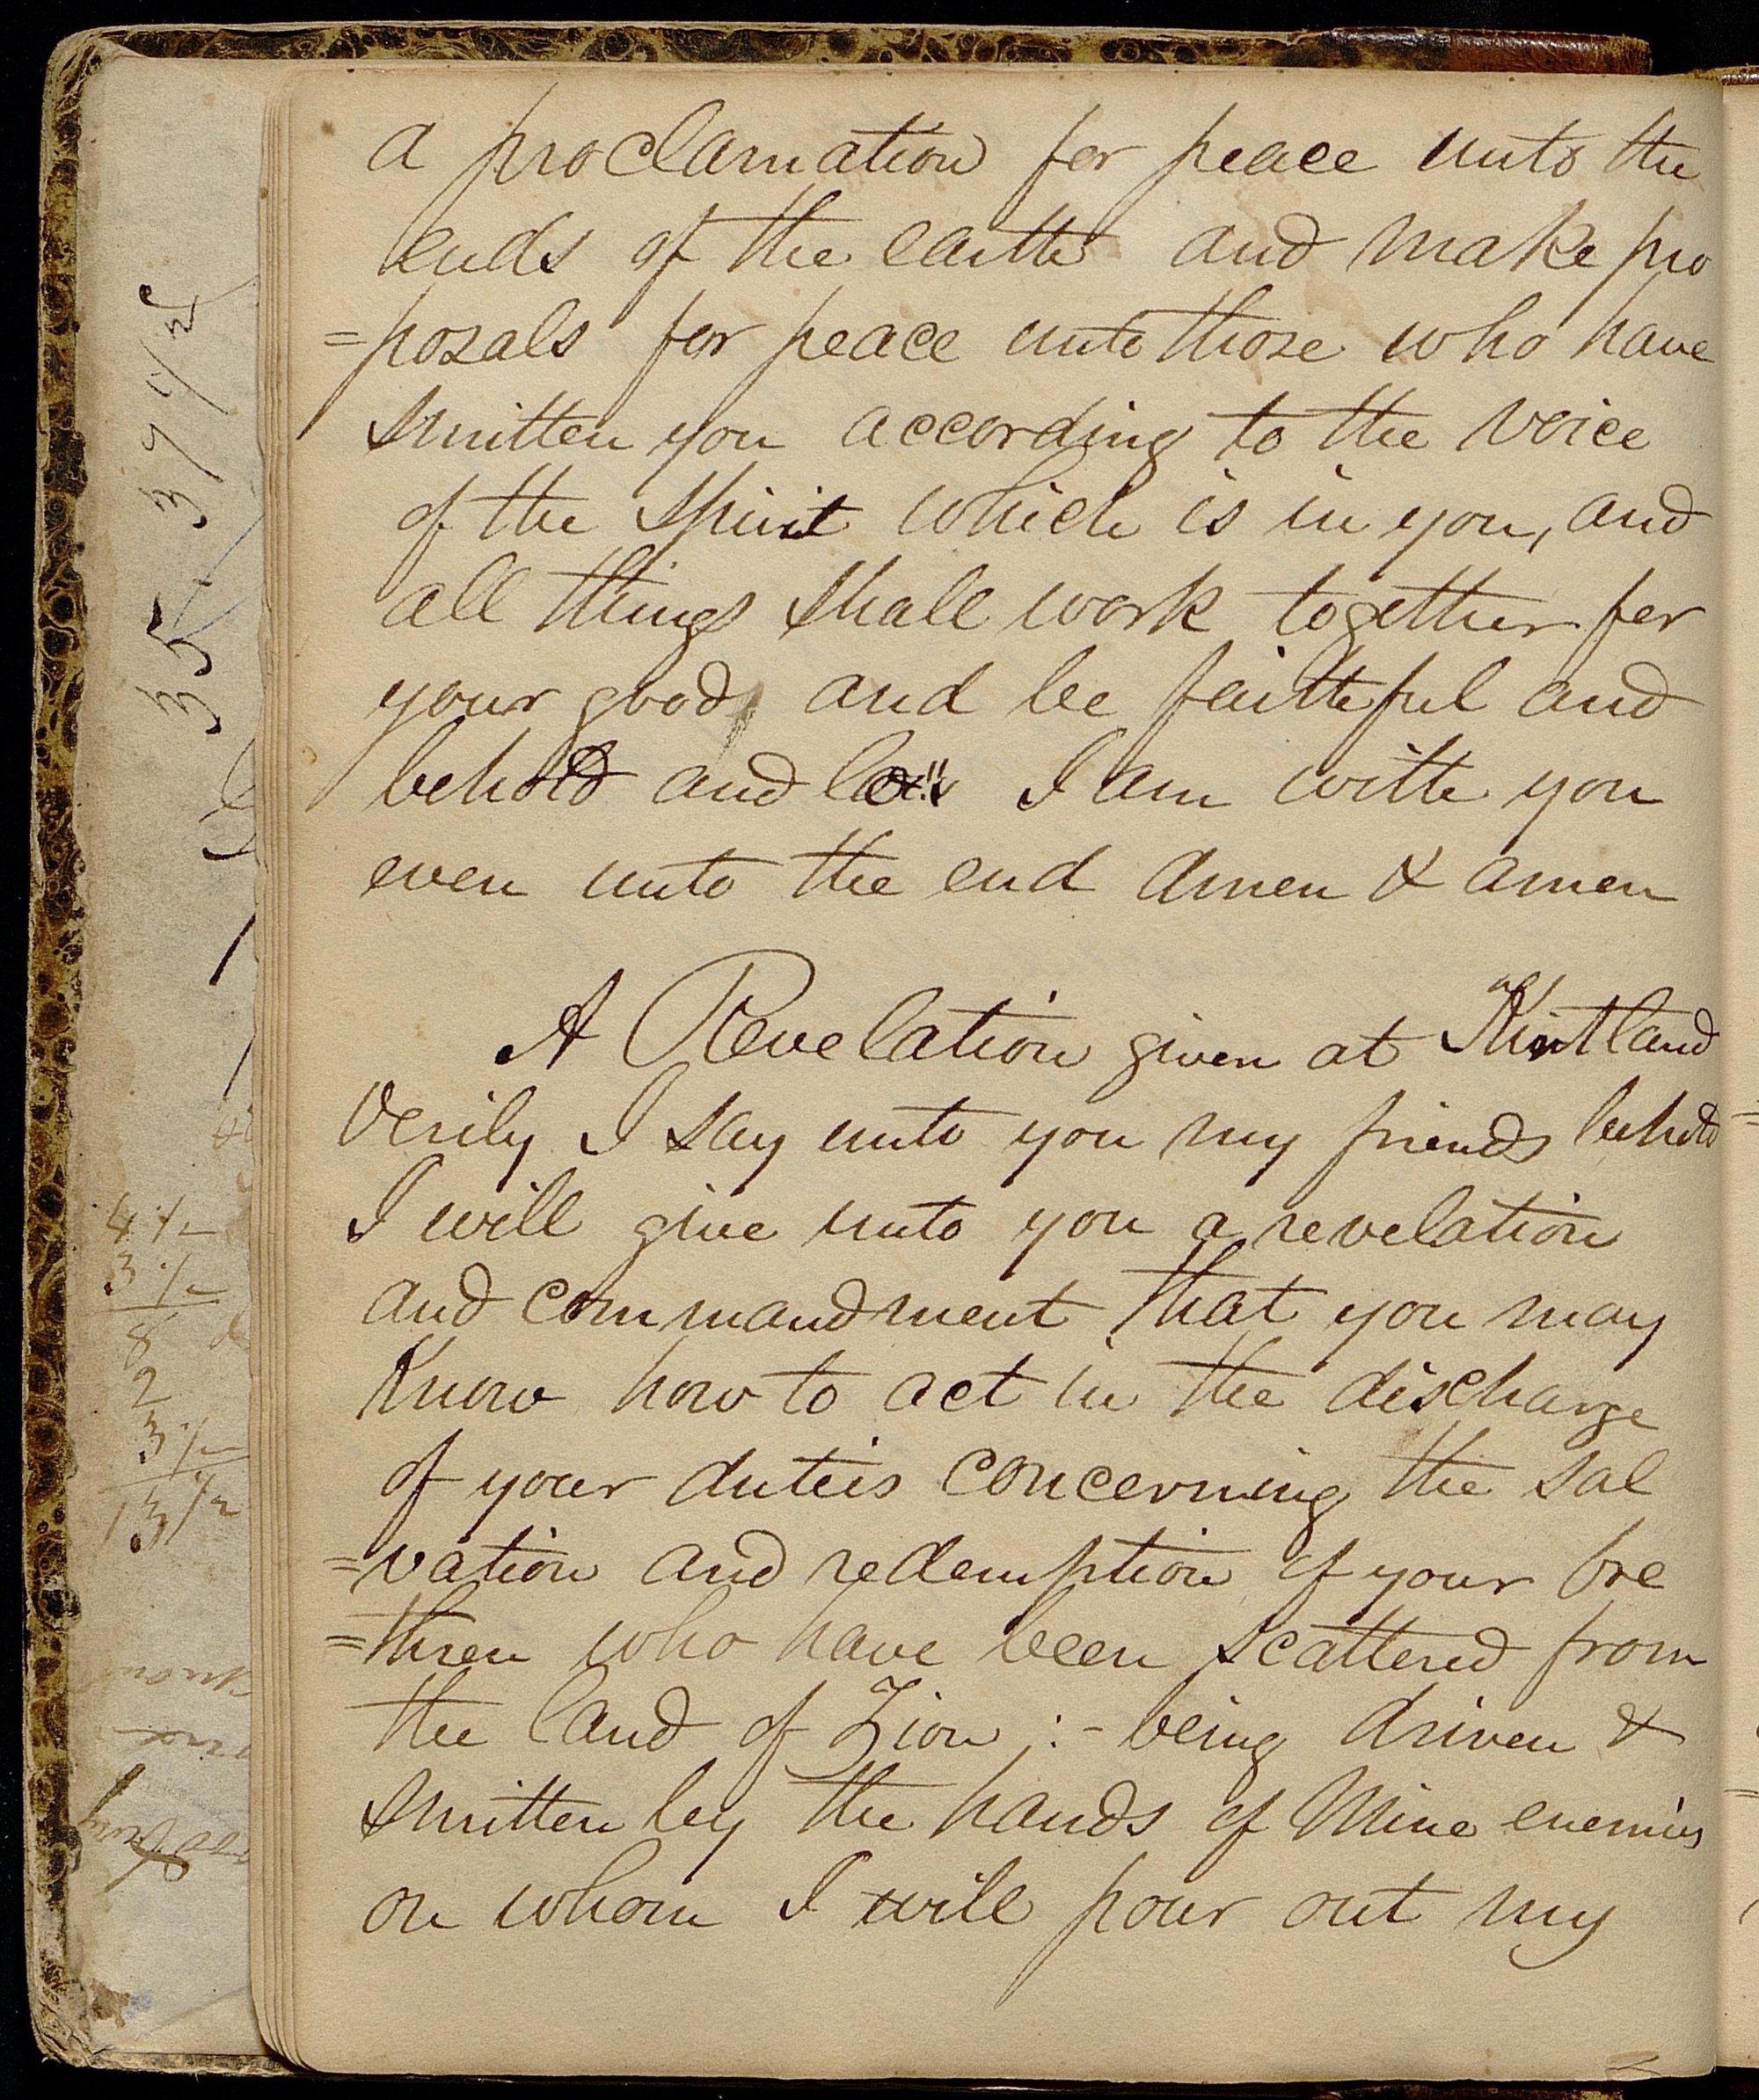 a proclamation for peace unto the
ends of the earth and make pro
=posals for peace unto those who have
smitten you according to the voice
of the spirit which is in you, and
all things shall work together for
your good, and be faithful and
behold and lo I am with you
even unto the end Amen & amen
A Revelation given at Kirtland
Verily I say unto you my friends behold
I will give unto you a revelation
and commandment that you may
Know how to act in the discharge
of your duteis concerning the sal
=vation and redemption of your bre
=thren who have been scattered from
the land of Zion :- being driven &
smitten by the hands of Mine enemies
on whom I will pour out my
35 37 1/2
4 1/2
3 1/2
8
2
3 1/2
13 1/2